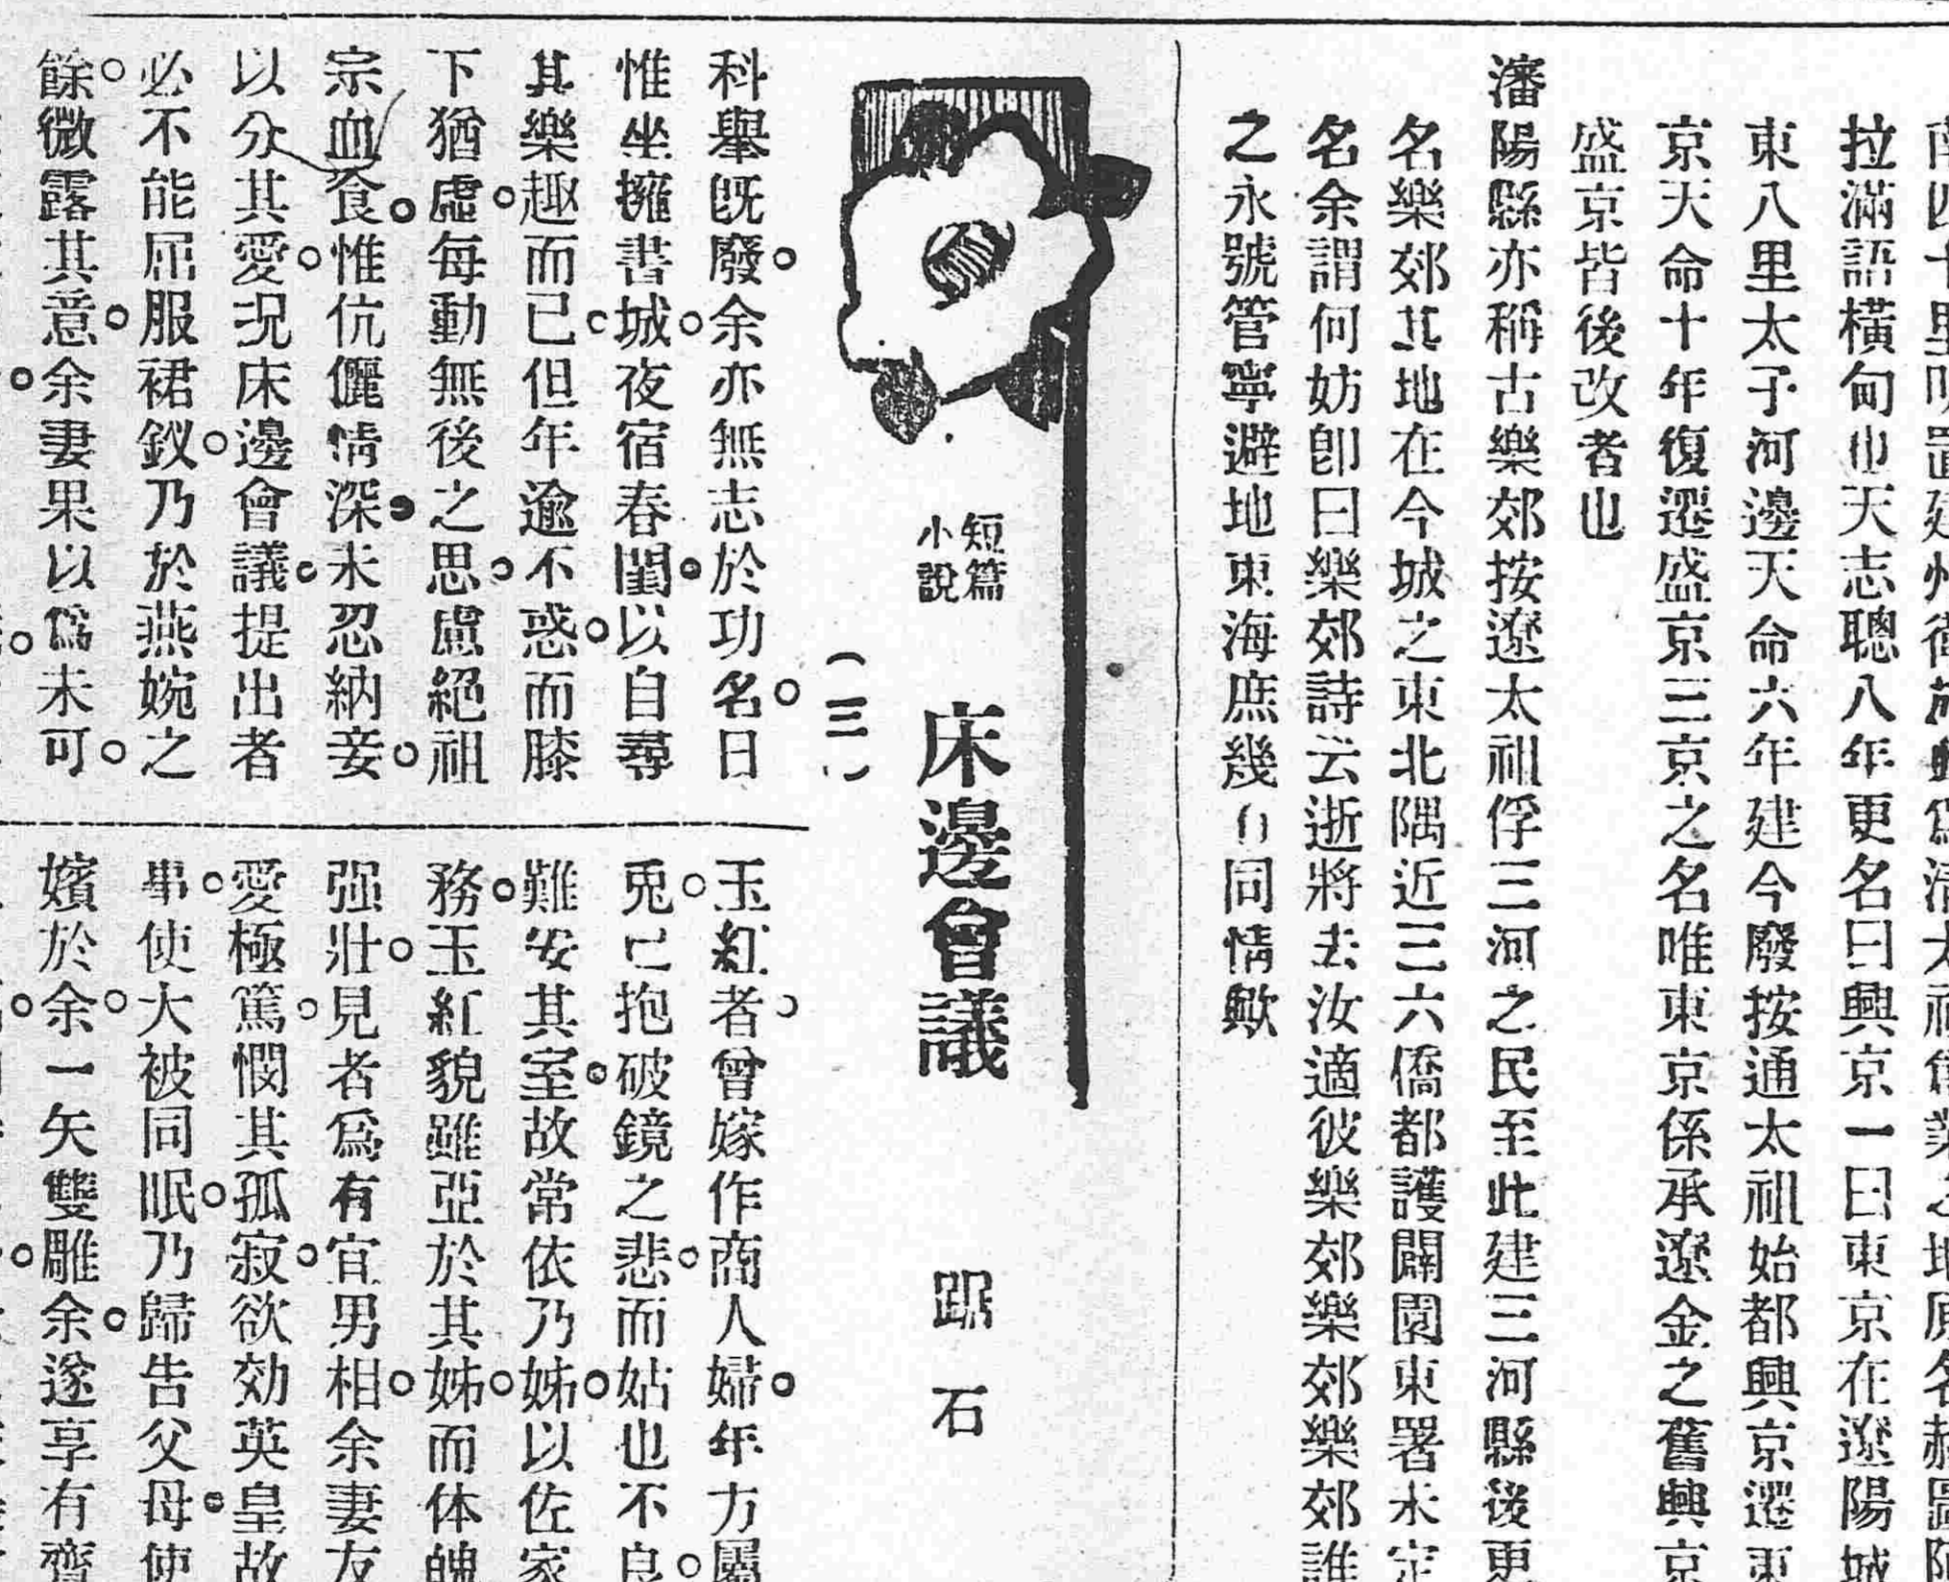 拉滿語橫甸也天志聰八年更名曰興京一曰東京在遼陽城
東八里太子河邊天命六年建今廢按通太祖始都興京遷東
京天命十年復遷盛京三京之名唯東京係承遼金之舊興京
盛京皆後改者也
瀋陽縣亦稱古樂郊按遼太祖俘三河之民至此建三河縣後更
名樂郊其地在今城之東北隅近三六僑都護闢園東署未定
名余謂何妨卽曰樂郊詩云逝將去汝適彼樂郊樂郊樂郊誰
之永號管寧避地東海庶幾有同情歟
短篇
小說
床邊會議
石
（三）
科擧旣廢。余亦無志於功名。日
惟坐擁書城。夜宿春閨。以自尋
其樂趣而已。但年逾不惑。而膝
下猶虛。每動無後之思。慮絕祖
宗血食。惟伉儷情深。未忍納妾。
以分其愛。況床邊會議。提出者
必不能屈服裙釵。乃於燕婉之
餘。微露其意。余妻果以爲未可。
玉紅者。曾嫁作商人婦。年方屬
兎。已抱破鏡之悲。而姑也不良。
難安其室。故常依乃姊。以佐家
務。玉紅貌雖亞於其姊。而体魄
强壯。見者爲有宜男相。余妻友
愛極篤。憫其孤寂。欲効英皇故
事。使大被同眠。乃歸告父母。使
嬪於余。一矢雙雕。余遂享有齊